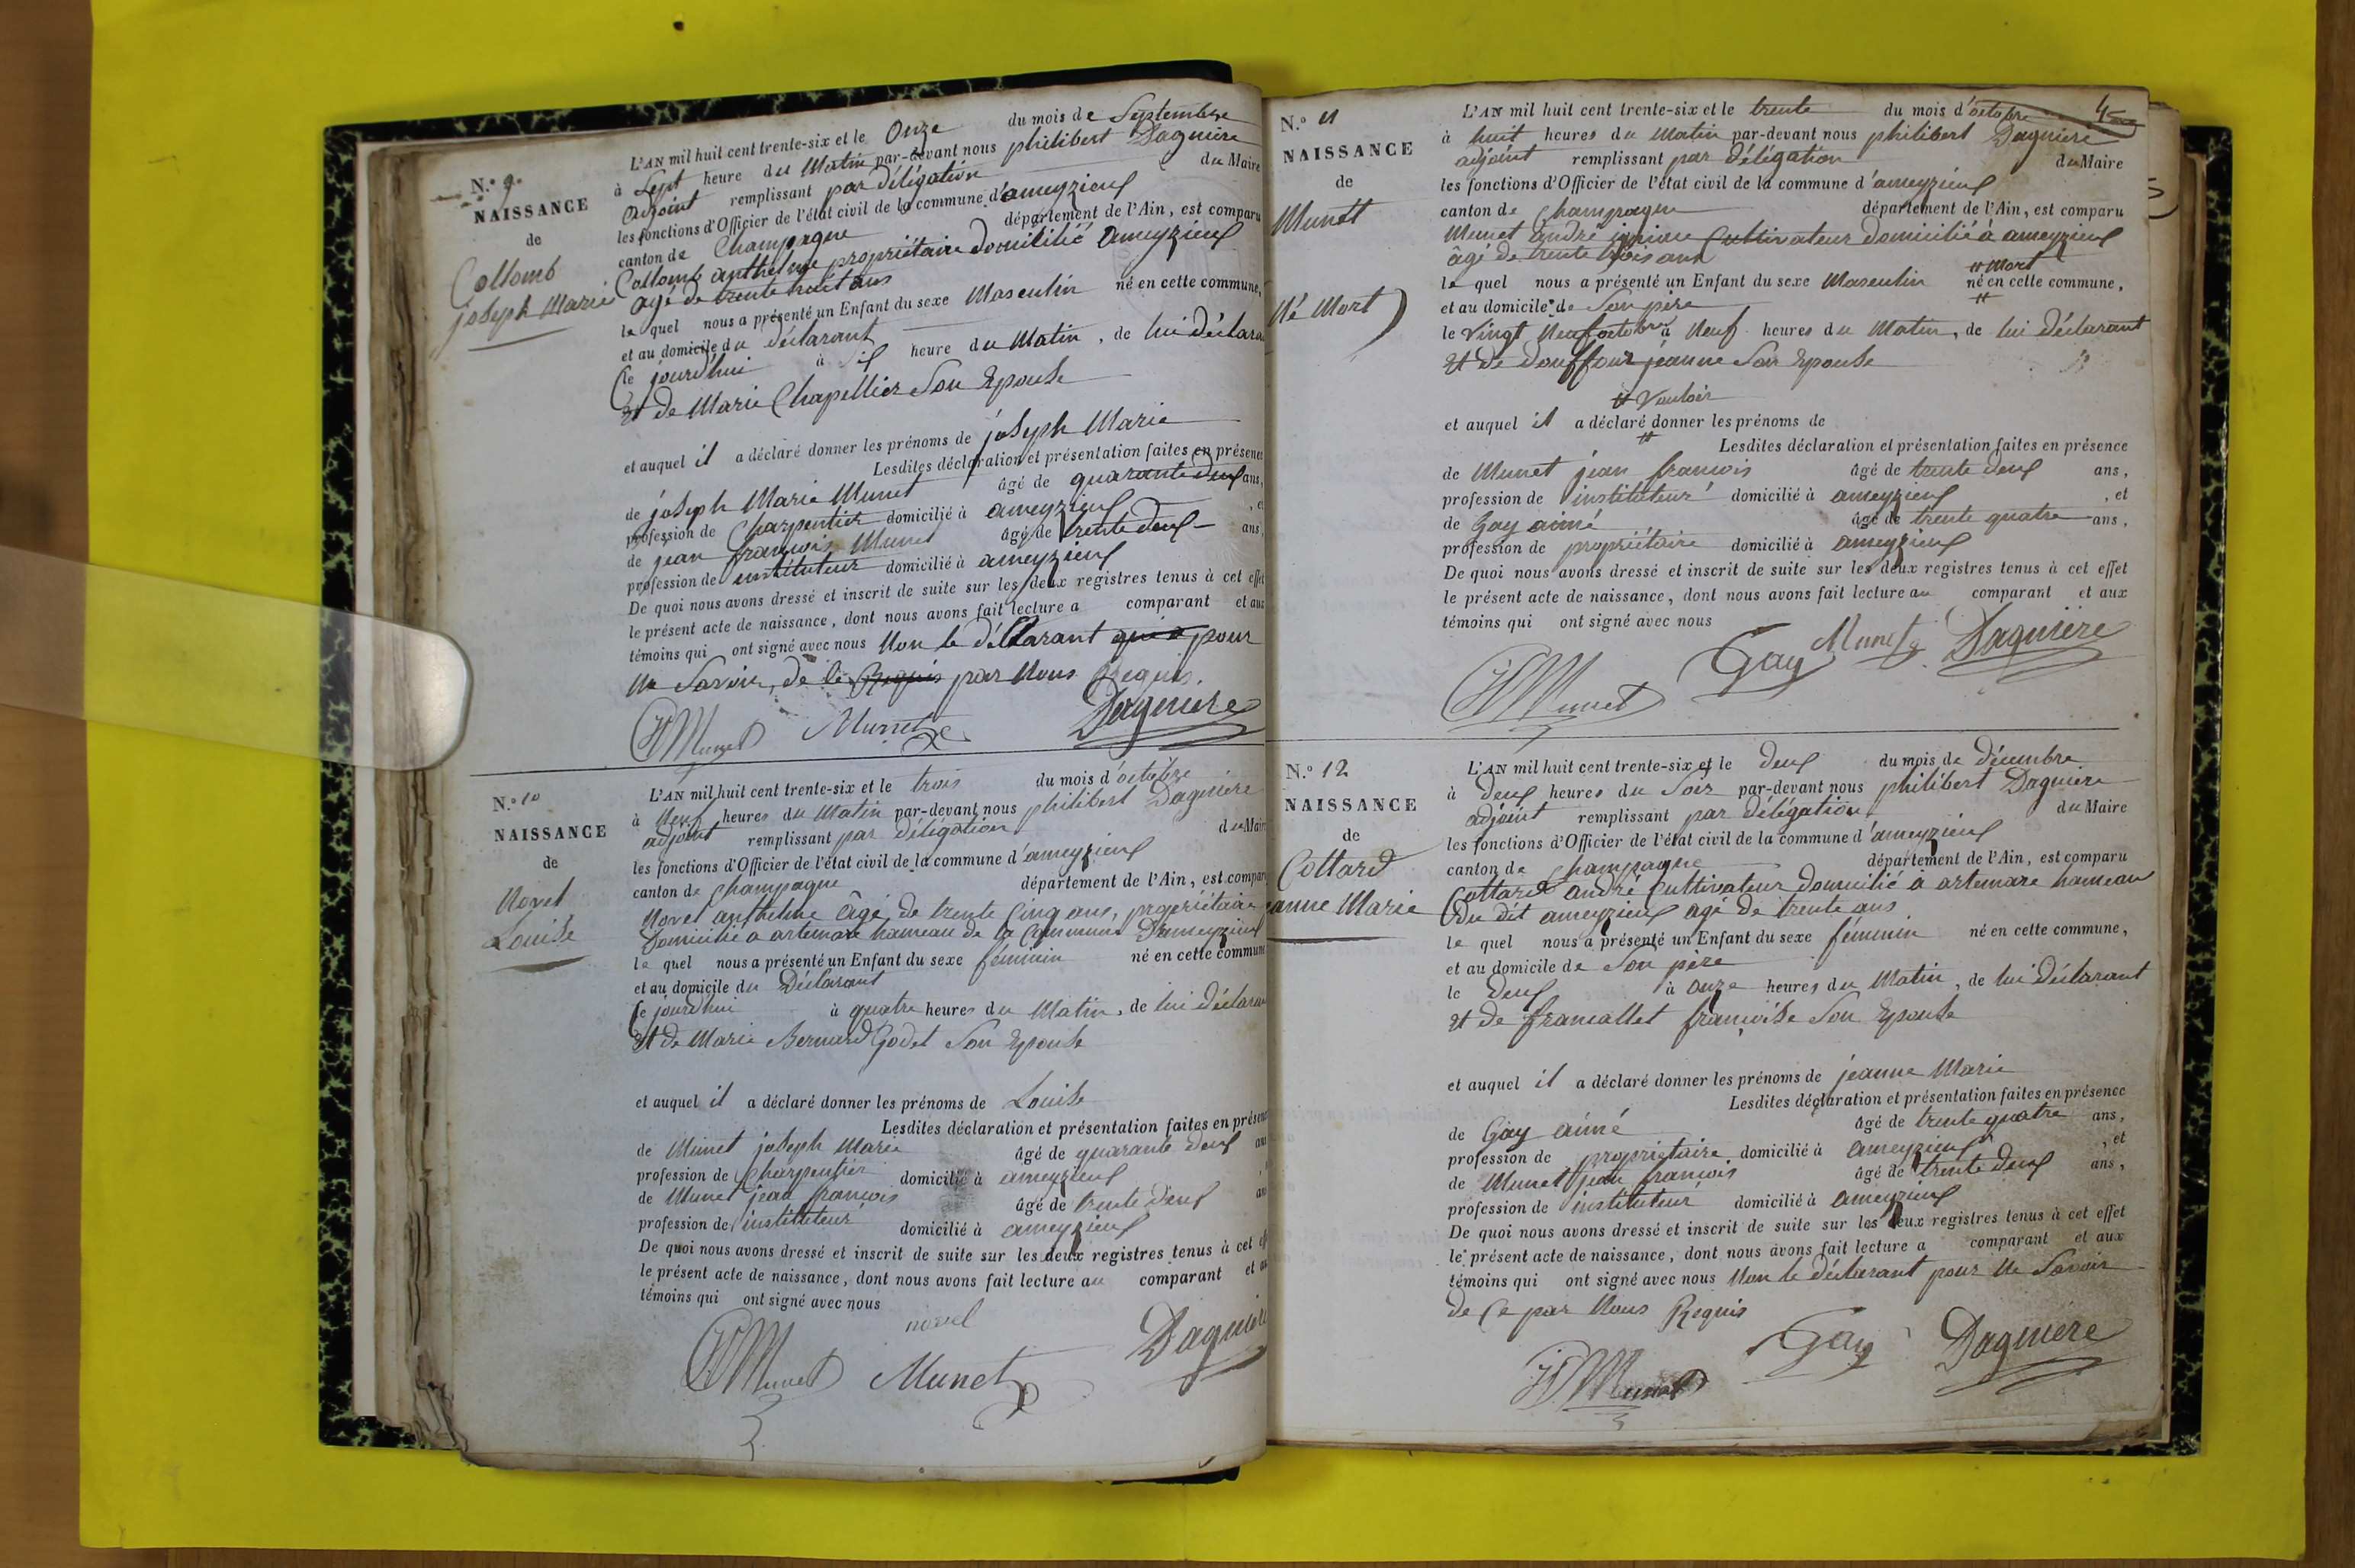 N.º 9.
NAISSANCE
de
Collomb
joseph Marie
L'AN mil huit cent trente-six et le Onze du mois de Septembre
à Sept heure du Matin par-devant nous philibert Dagnière
adjoint remplissant par délégation du Maire
les fonctions d'Officier de l'état civil de la commune d'ameyzieux
canton de Champagne département de l'Ain, est comparu
Collomb anthelme propriétaire domicilié Ameyzieux
agé de trente huit ans
le quel nous a présenté un Enfant du sexe Masculin né en cette commune,
et au domicile du déclarant
Ce jourd'hui à six heure du Matin, de lui déclara
Et de Marie Chapellier Son Epouse
et auquel il a déclaré donner les prénoms de joseph Marie
Lesdites déclaration et présentation faites en présence
de joseph Marie Munet âgé de quarante deux ans,
profession de Charpentier domicilié à ameyzieux, et
de jean françois Munet âgé de trente deux ans,
profession de instituteur domicilié à ameyzieux
De quoi nous avons dressé et inscrit de suite sur les deux registres tenus à cet effet
le présent acte de naissance, dont nous avons fait lecture a comparant et aux
témoins qui ont signé avec nous Non le déclarant qui a pour
Ne Savoir, de le Requis par Nous Requis.
JFMunet Munet Dagniere
N.º 10
NAISSANCE
de
Novel
Louise
L'AN mil huit cent trente-six et le trois du mois d'octobre
à Neuf heures du Matin par-devant nous philibert Dagnière
adjoint remplissant par délégation du Maire
les fonctions d'Officier de l'état civil de la commune d'ameyzieux
canton de Champagne département de l'Ain, est compar
Novel anthelme âgé de trente Cinq ans, propriétaire
Domicilié à artemare hameau de la Commune D'ameyzieux
le quel nous a présenté un Enfant du sexe féminin né en cette commune
et au domicile du Déclarant
Ce jourd'hui à quatre heures du Matin, de lui déclaran
Et de Marie Bernard Godet Son Epouse
et auquel il a déclaré donner les prénoms de Louise
Lesdites déclaration et présentation faites en présenc
de Munet joseph Marie âgé de quarante deux ans
profession de Charpentier domicilié à ameyzieux
de Munet jean françois âgé de trente deux an
profession de instituteur domicilié à ameyzieux
De quoi nous avons dressé et inscrit de suite sur les deux registres tenus à cet eff
le présent acte de naissance, dont nous avons fait lecture au comparant et au
témoins qui ont signé avec nous
novel
JFMunet Munet Dagnière
4
N.º 11
NAISSANCE
de
Munet
Né Mort
L'AN mil huit cent trente-six et le trente du mois d'octobre
à huit heures du Matin par-devant nous philibert Dagnière
adjoint remplissant par délégation du Maire
les fonctions d'Officier de l'état civil de la commune d'ameyzieux
canton de Champagne département de l'Ain, est comparu
Munet andré Cultivateur domicilié à ameyzieux
âgé de trente trois ans
# Mort
le quel nous a présenté un Enfant du sexe Masculin né en cette commune,
et au domicile de Son père #
le Vingt Neuf octobre à Neuf heures du Matin, de lui déclarant
Et de Douffour jeanne Son Epouse
# Vouloir
et auquel il a déclaré donner les prénoms de
# Lesdites déclaration et présentation faites en présence
de Munet jean françois âgé de trente deux ans,
profession de instituteur domicilié à ameyzieux, et
de Gay aimé âgé de trente quatre ans,
profession de propriétaire domicilié à ameyzieux
De quoi nous avons dressé et inscrit de suite sur les deux registres tenus à cet effet
le présent acte de naissance, dont nous avons fait lecture au comparant et aux
témoins qui ont signé avec nous
JFMunet Gay Munet Dagnière
N.º 12
NAISSANCE
de
Cottard
anne Marie
L'AN mil huit cent trente-six et le deux du mois de décembre
à deux heures du Soir par-devant nous philibert Dagnière
adjoint remplissant par délégation du Maire
les fonctions d'Officier de l'état civil de la commune d'ameyzieux
canton de Champagne département de l'Ain, est comparu
Cottard andré Cultivateur domicilié à artemare hameau
du dit ameyzieux agé de trente ans
le quel nous a présenté un Enfant du sexe féminin né en cette commune,
et au domicile de Son père
le deux à onze heures du Matin, de lui déclarant
Et de francallet françoise Son Epouse
et auquel il a déclaré donner les prénoms de jeanne Marie
Lesdites déclaration et présentation faites en présence
de Gay aimé âgé de trente quatre ans,
profession de propriétaire domicilié à ameyzieux, et
de Munet jean françois âgé de trente deux ans,
profession de instituteur domicilié à ameyzieux
De quoi nous avons dressé et inscrit de suite sur les deux registres tenus à cet effet
le présent acte de naissance, dont nous avons fait lecture a comparant et aux
témoins qui ont signé avec nous Non le déclarant pour Ne Savoir
de Ce par Nous Requis
JFMunet Gay Dagnière